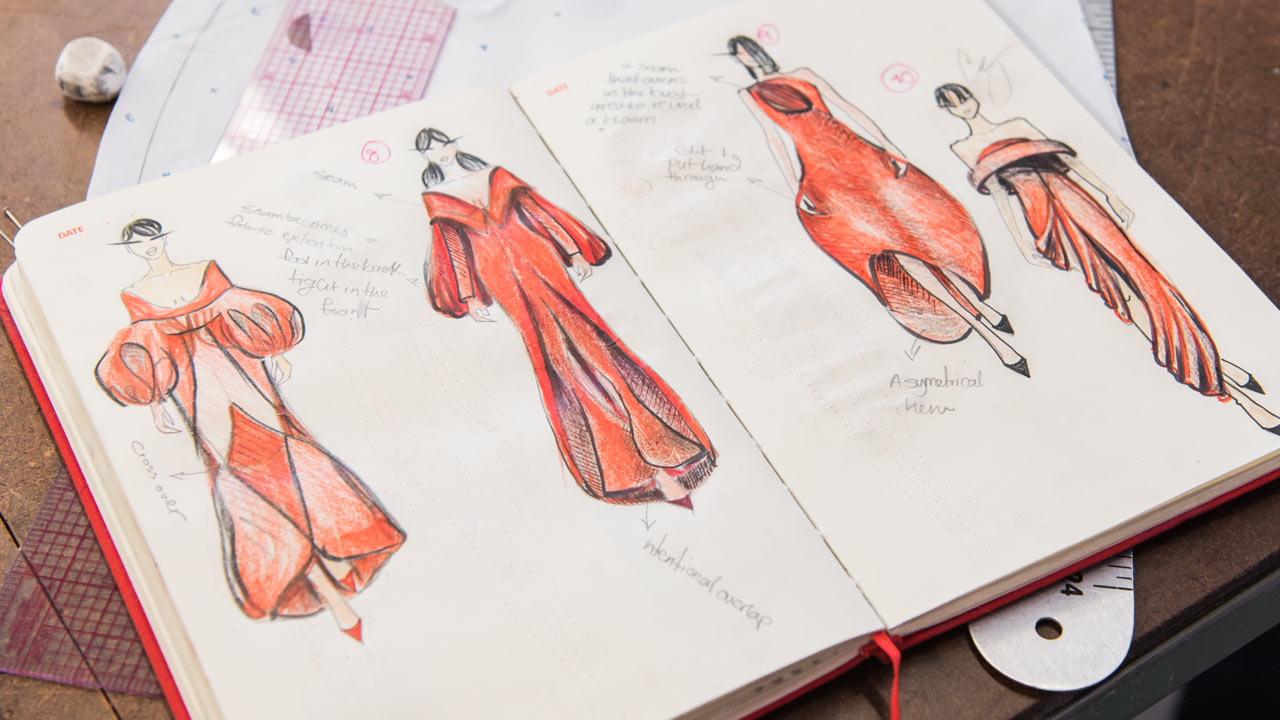 DATE
8
seam
seam becomes
fabric extention
fool in the back
tight in the
front
Cross over
intentional overlap
DATE
9
a seam
that overs
in the bust
area to reveal
a bloom
slit to
put hand
through
Asymetrical
hem
10
24